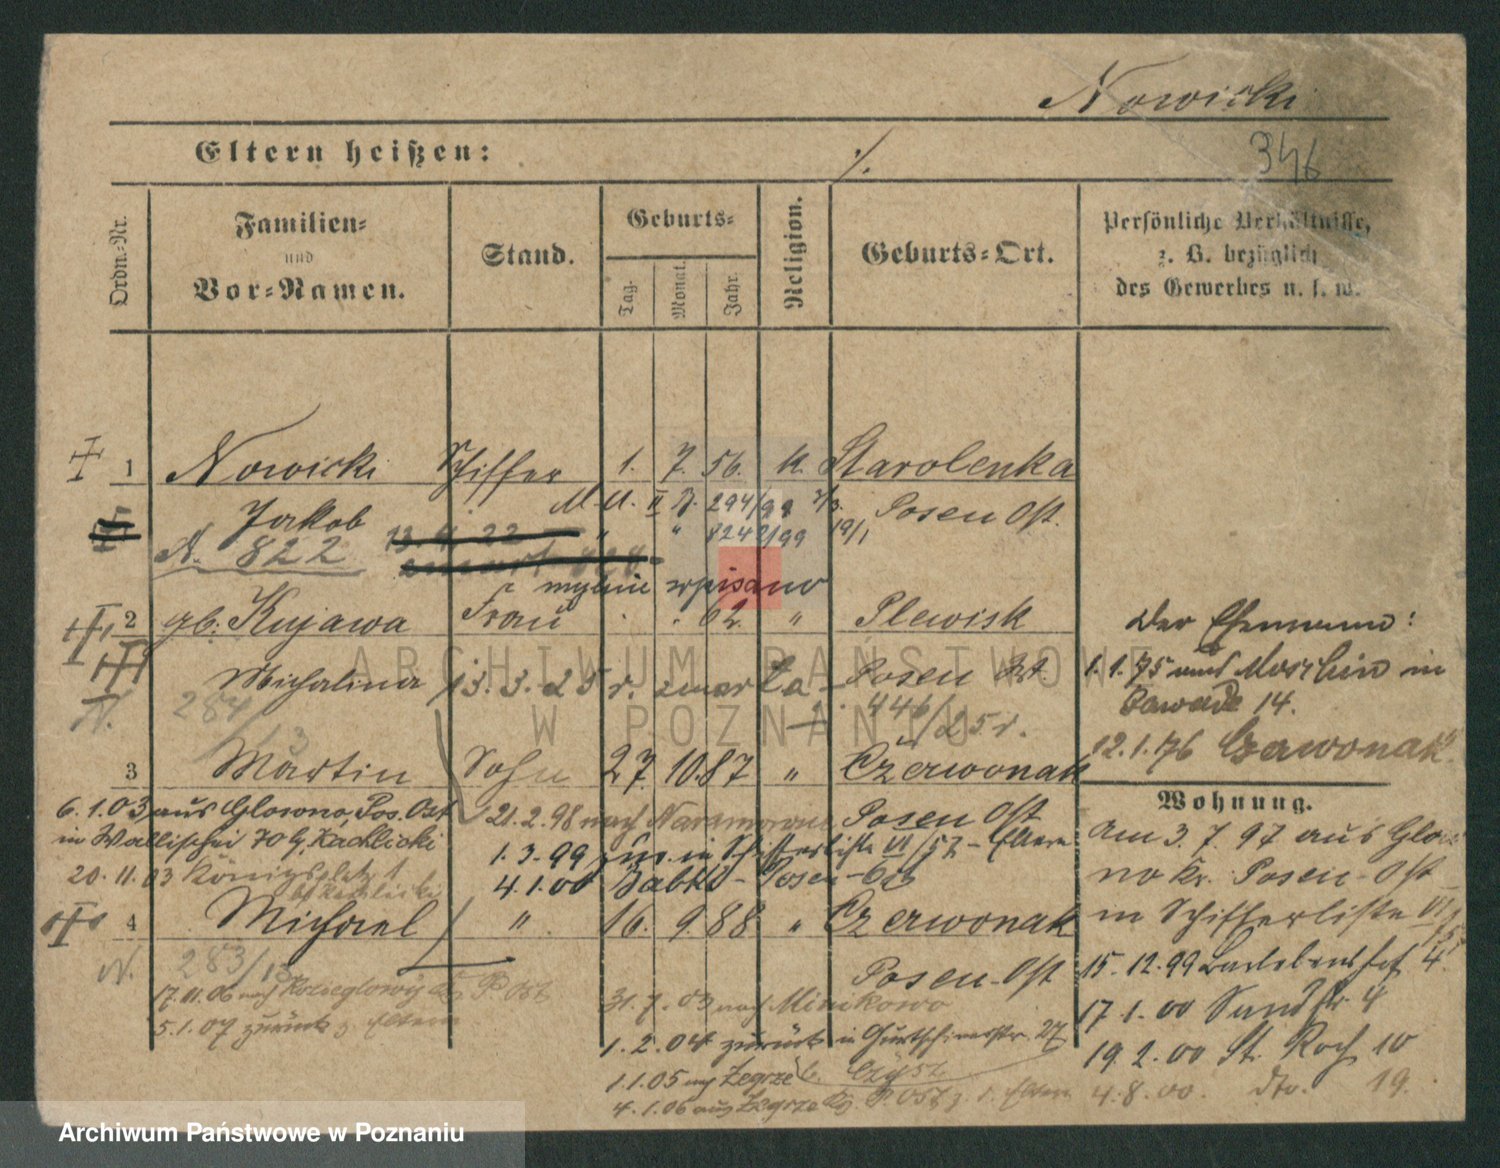 Nowicki
Eltern heißen:
./.
346
Ordn.-Nr.
Familien-
und
Vor-Namen.
Stand.
Geburts-
Tag.
Monat.
Jahr.
Religion.
Geburts-Ort.
Persönliche Verhältnisse,
z. B. bezüglich
des Gewerbes u. s. w.
1 Nowicki Schiffer 1. 7. 56. k. Starolenka
Jakob M. U. II J. 294/99 7/3. Posen Ost.
" " 8242/99 19/1
N. 822
mylnie wpisano
2 gb. Kujawa Frau . . 62. " Plewisk
Der Ehemann:
Michalina 13. 3. 25 r. zmarła - Posen Ost.
1.1.75 in
14.
N. 284/13 446/25 r.
12.1.76 Czerwonak.
3 Martin Sohn 27. 10. 87 " Czerwonak
Wohnung.
6.1.03 aus Glowno, Pos. Ost 21.2.98 nach Naramowice Posen Ost
in Wallischei 70 b, Kachlicki 1.3.99 in Schifferliste VI/57 - Eltern
20.11.03 Königsplatz 1 4.1.00 Babki - Posen-Ost
b/ Kachlicki
am 3. 7. 97 aus Glow-
no Kr. Posen-Ost
in Schifferliste VI/57
4 Michael " 16. 9. 88 " Czerwonak
N. 283/13 Posen-Ost
15. 12. 99 4.
17.11.06 nach Koziegłowy Kr. P. Ost 31.7.03 nach Minikowo
17 1. 00 Sandstr. 4
5.1.07 zurück z. Eltern 1. 2. 04 zurück in Gurtschinerstr. 27
19. 2. 00 St. Roch 10
1.1.05 nach Zegrze b. Czysz
4. 8. 00. dto. 19.
4. 1.06 aus Zegrze Kr. P. Ost z. d. Eltern
ARCHIWUM PAŃSTWOWE
W POZNANIU
Archiwum Państwowe w Poznaniu